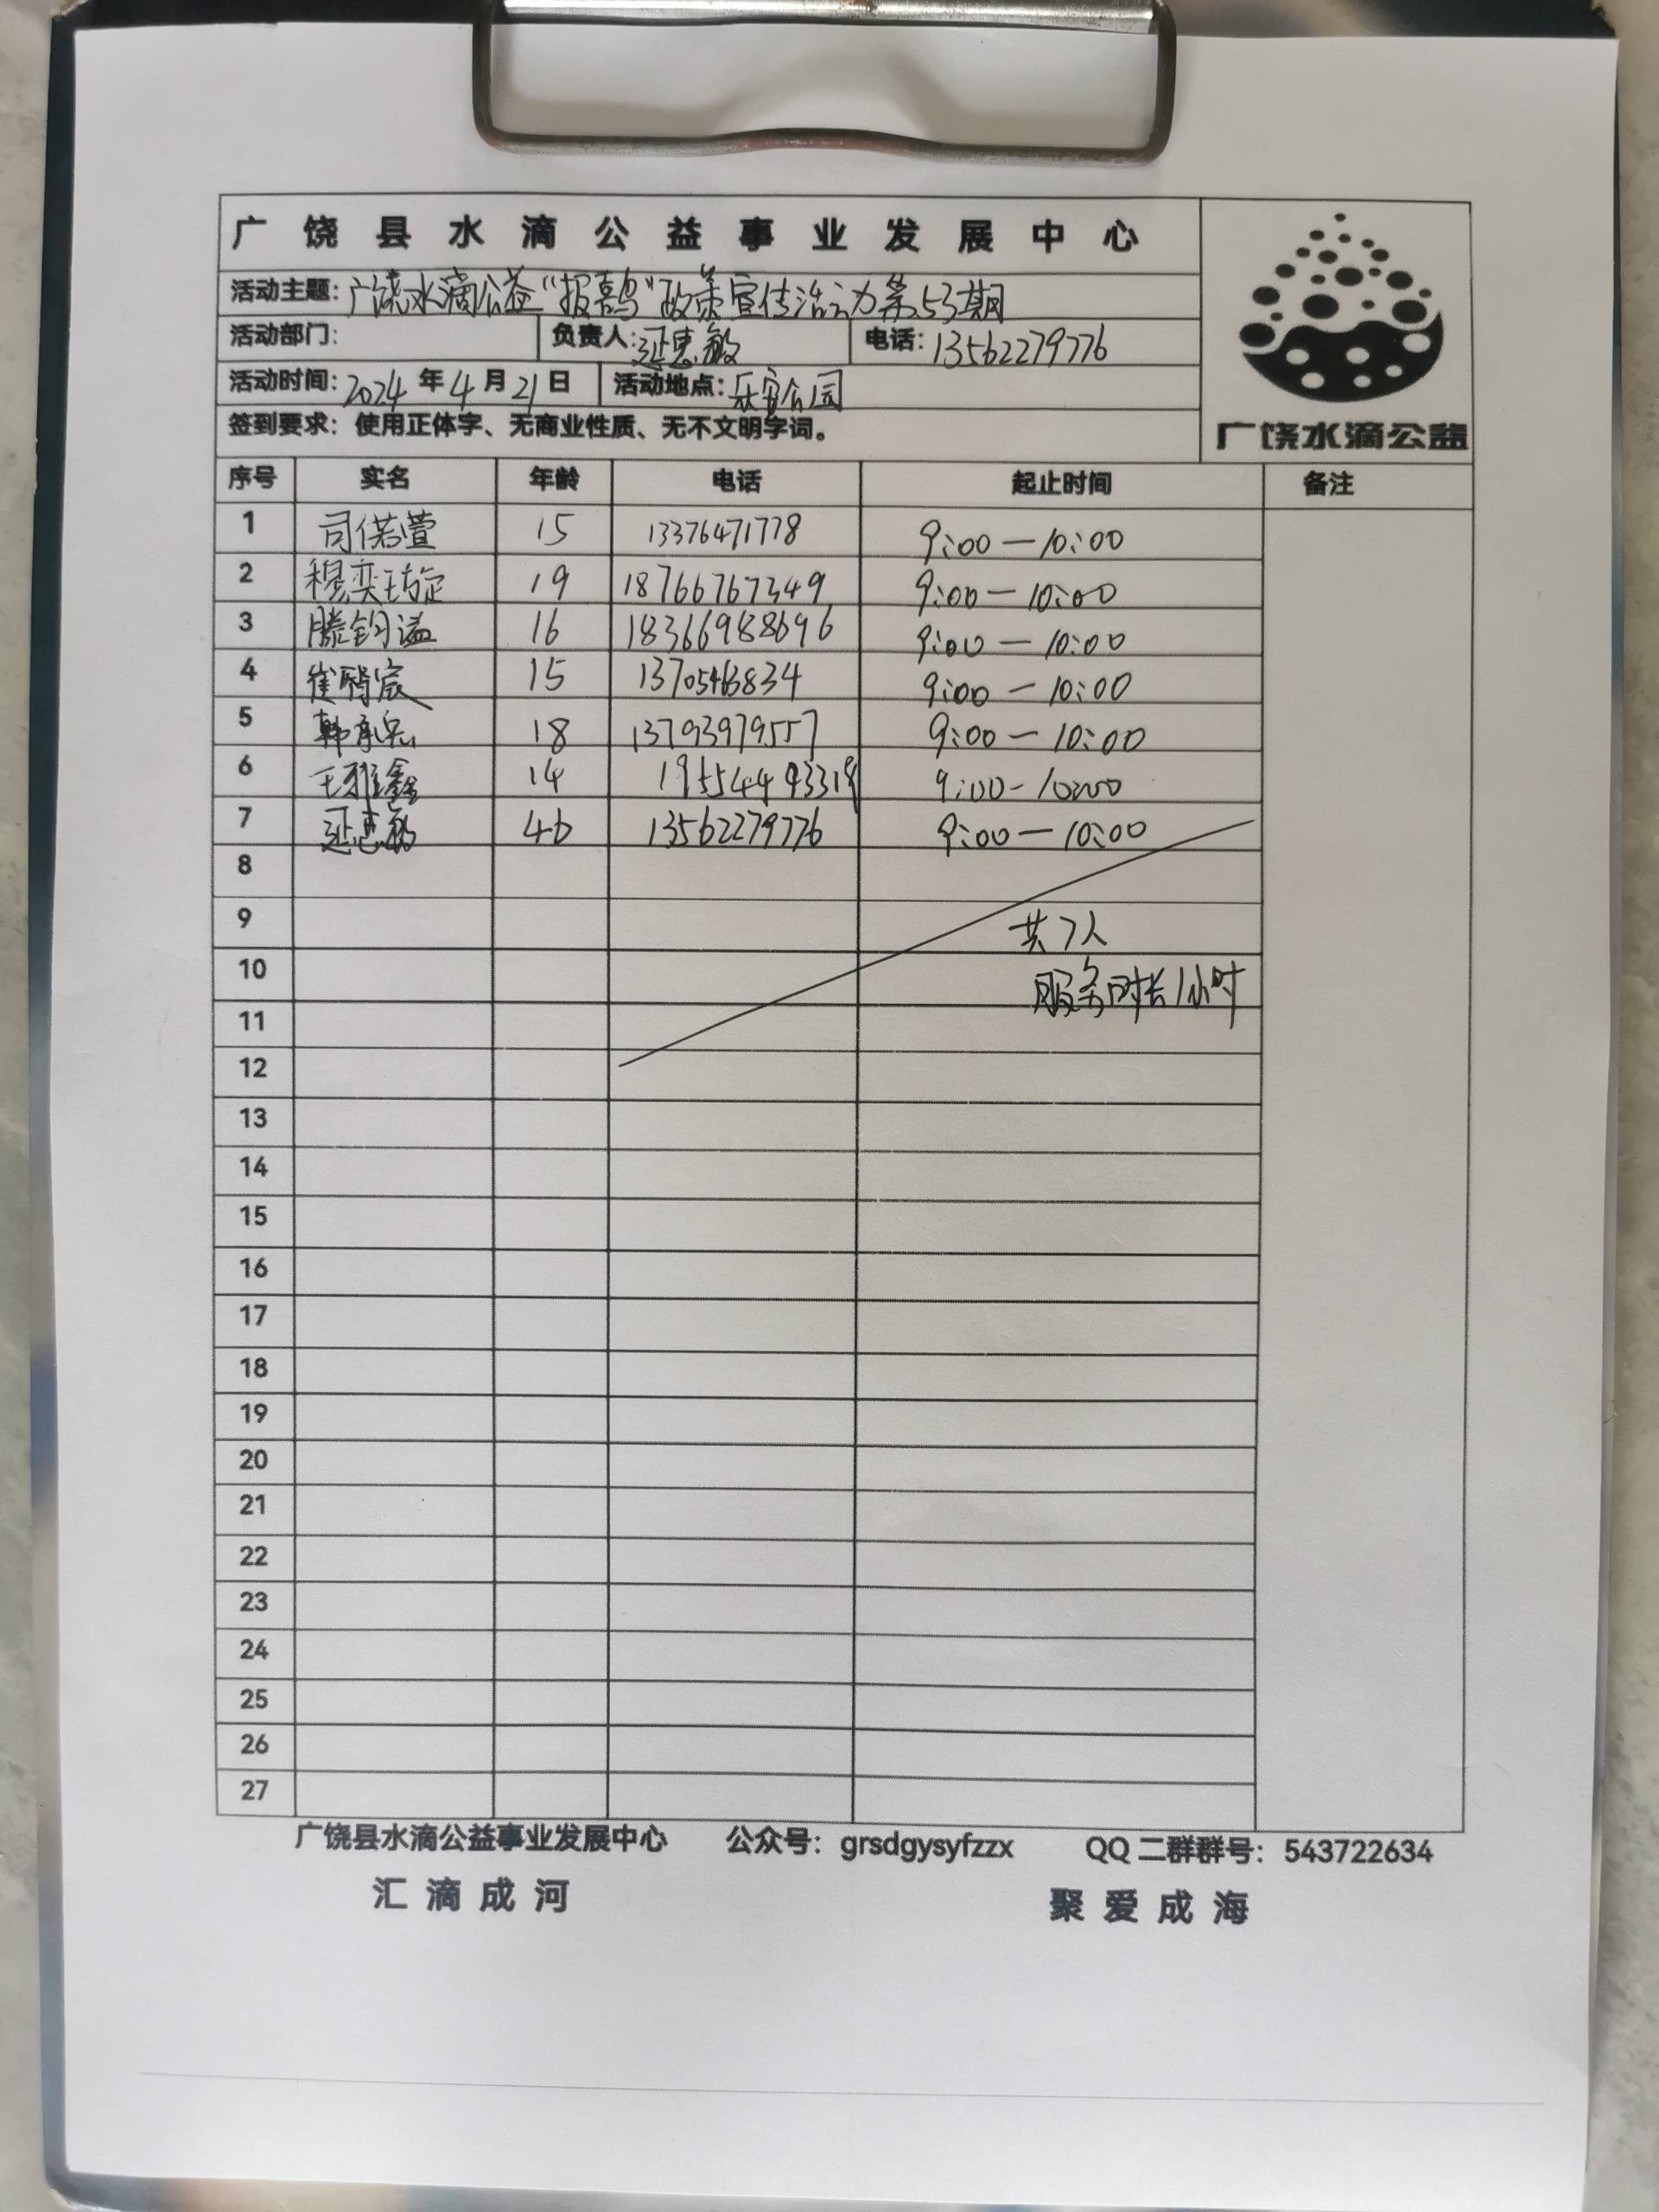 广饶县水滴公益事业发展中心
活动主题：广饶水滴公益“报喜鸟”政策宣传活动第53期
活动部门： 负责人：延惠敏 电话：13562279776
活动时间：2024年4月21日 活动地点：乐安公园
签到要求：使用正体字、无商业性质、无不文明字词。
广饶水滴公益
序号 实名 年龄 电话 起止时间 备注
1 司偌萱 15 13376471778 9:00—10:00
2 穆奕 19 18766767349 9:00—10:00
3 滕钧谥 16 18366988696 9:00—10:00
4 崔宸 15 13705463834 9:00—10:00
5 韩 18 13793979557 9:00—10:00
6 王雅鑫 14 9:00-10:00
7 延惠敏 46 13562279776 9:00—10:00
8
9 共7人
10 服务时长1小时
11
12
13
14
15
16
17
18
19
20
21
22
23
24
25
26
27
广饶县水滴公益事业发展中心 公众号：grsdgysyfzzx QQ二群群号：543722634
汇滴成河 聚爱成海